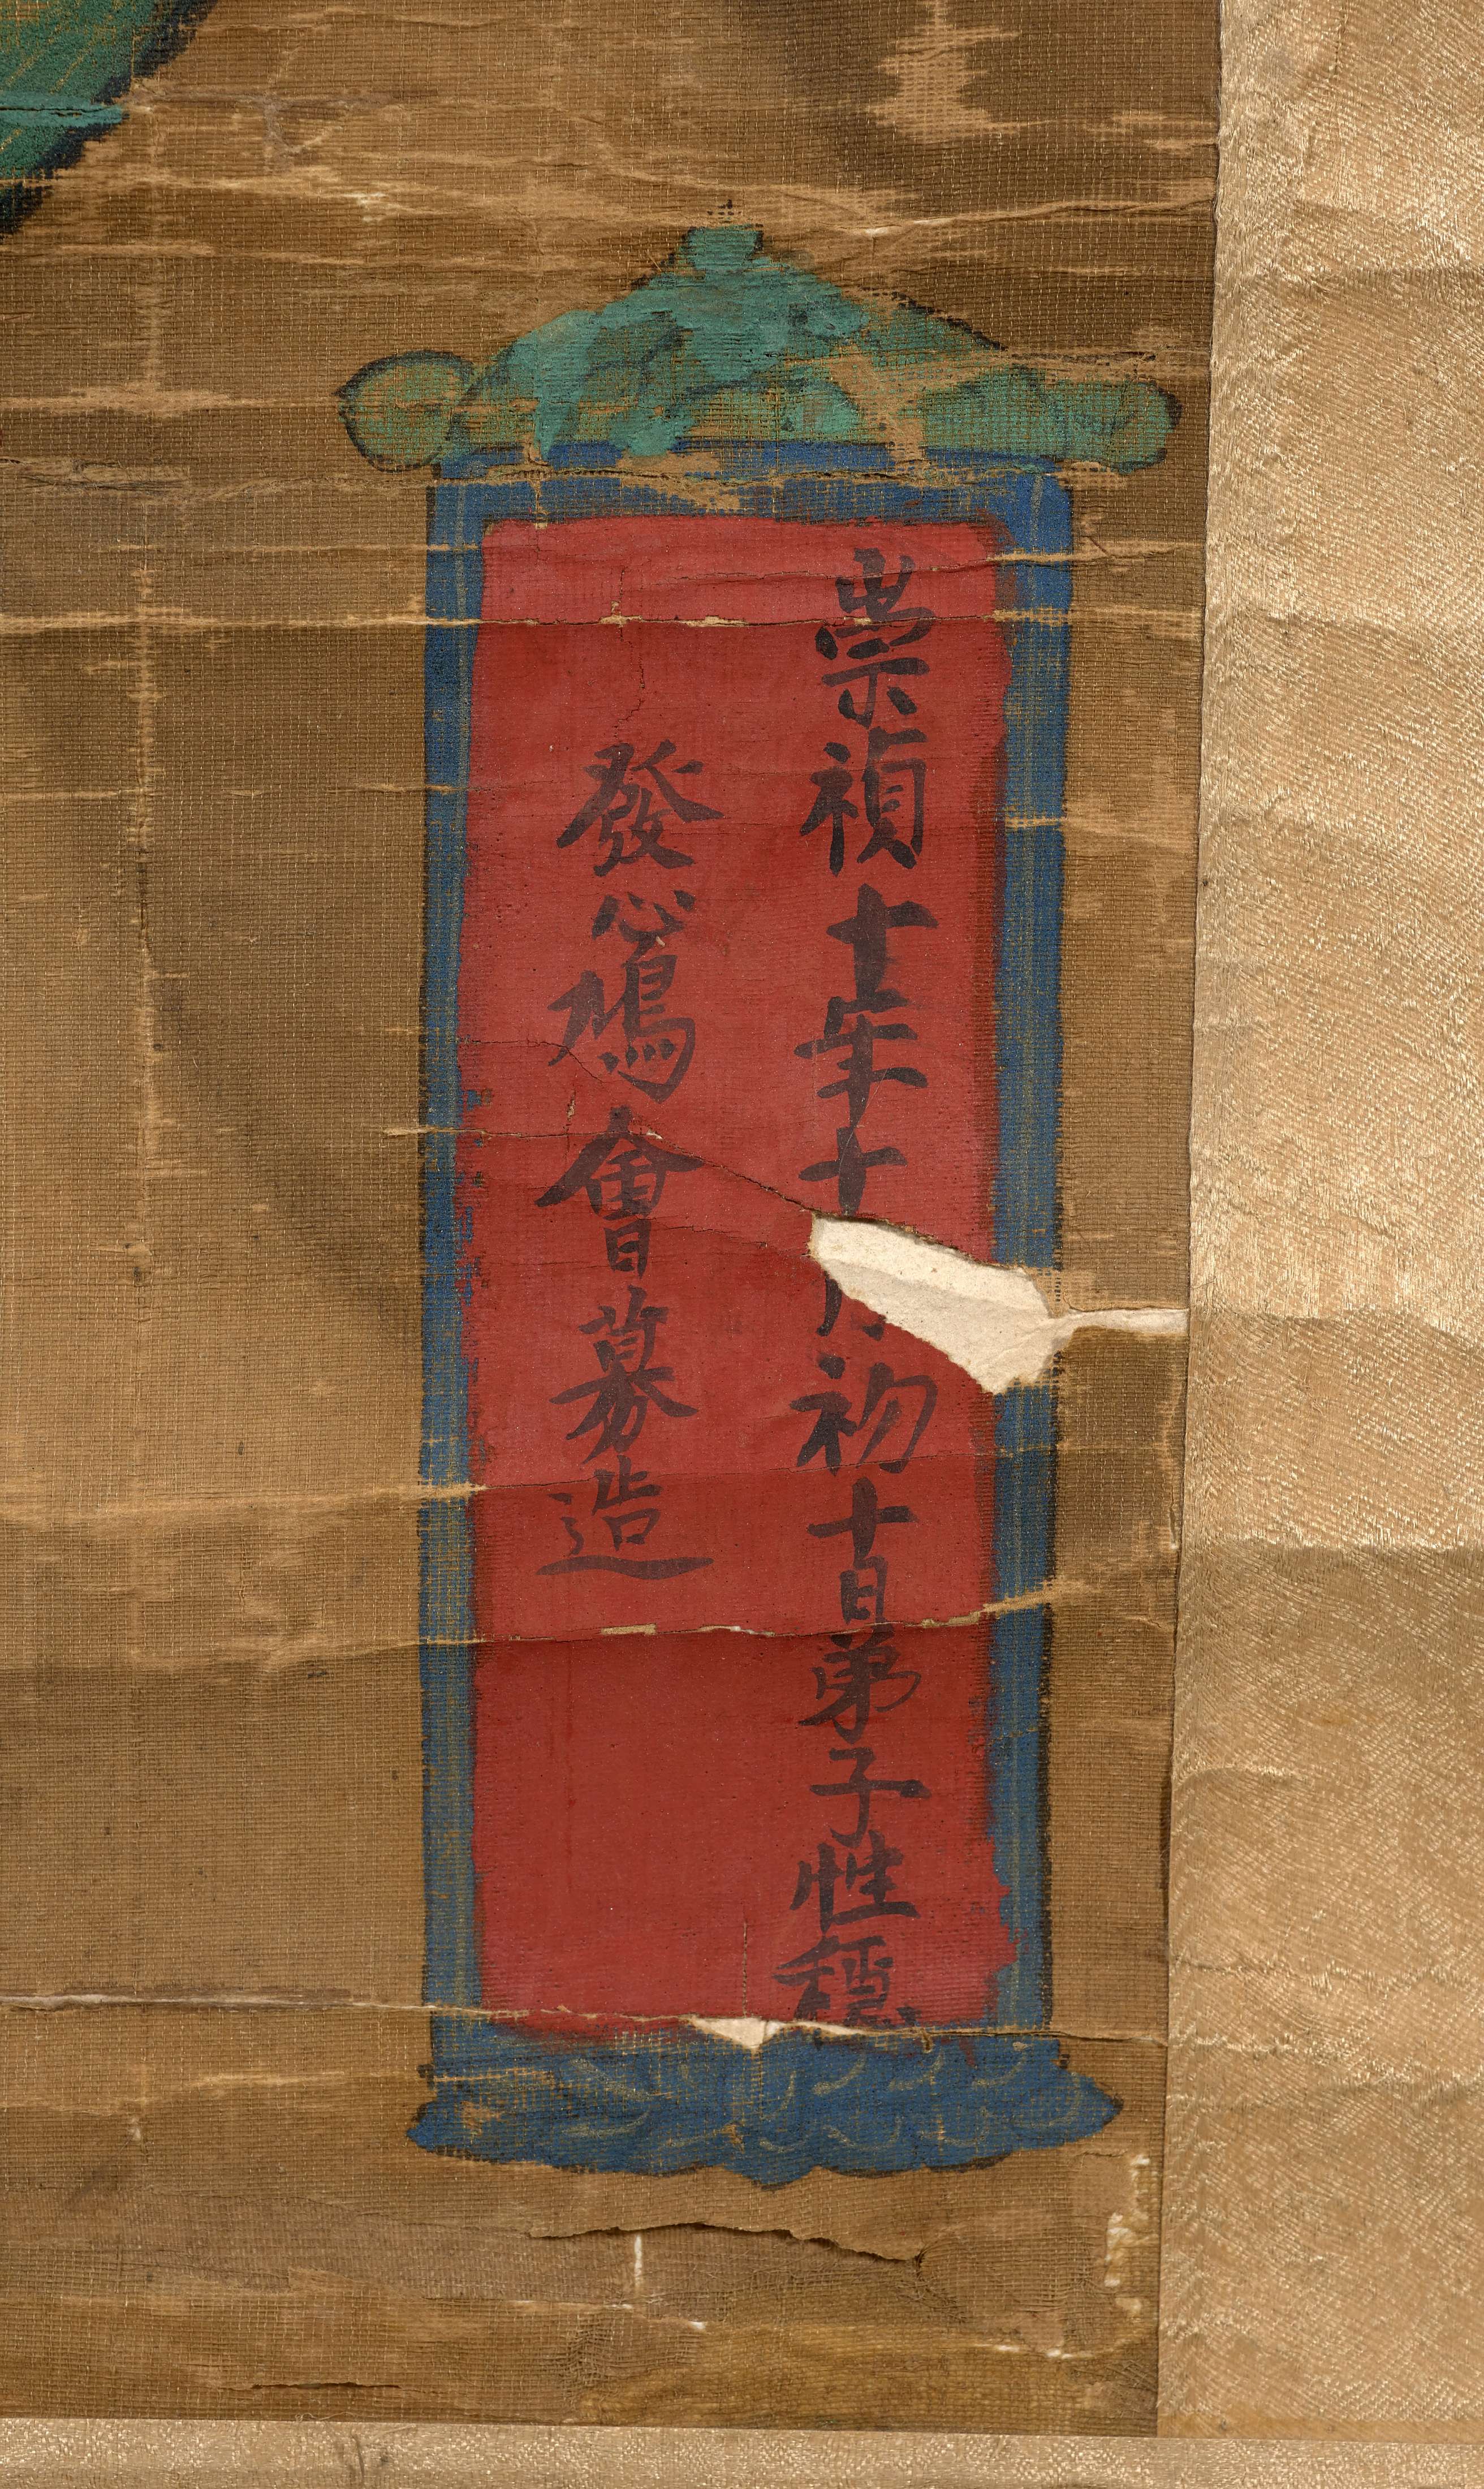 崇禎十年十月初十日弟子性穩
發心鳩會募造